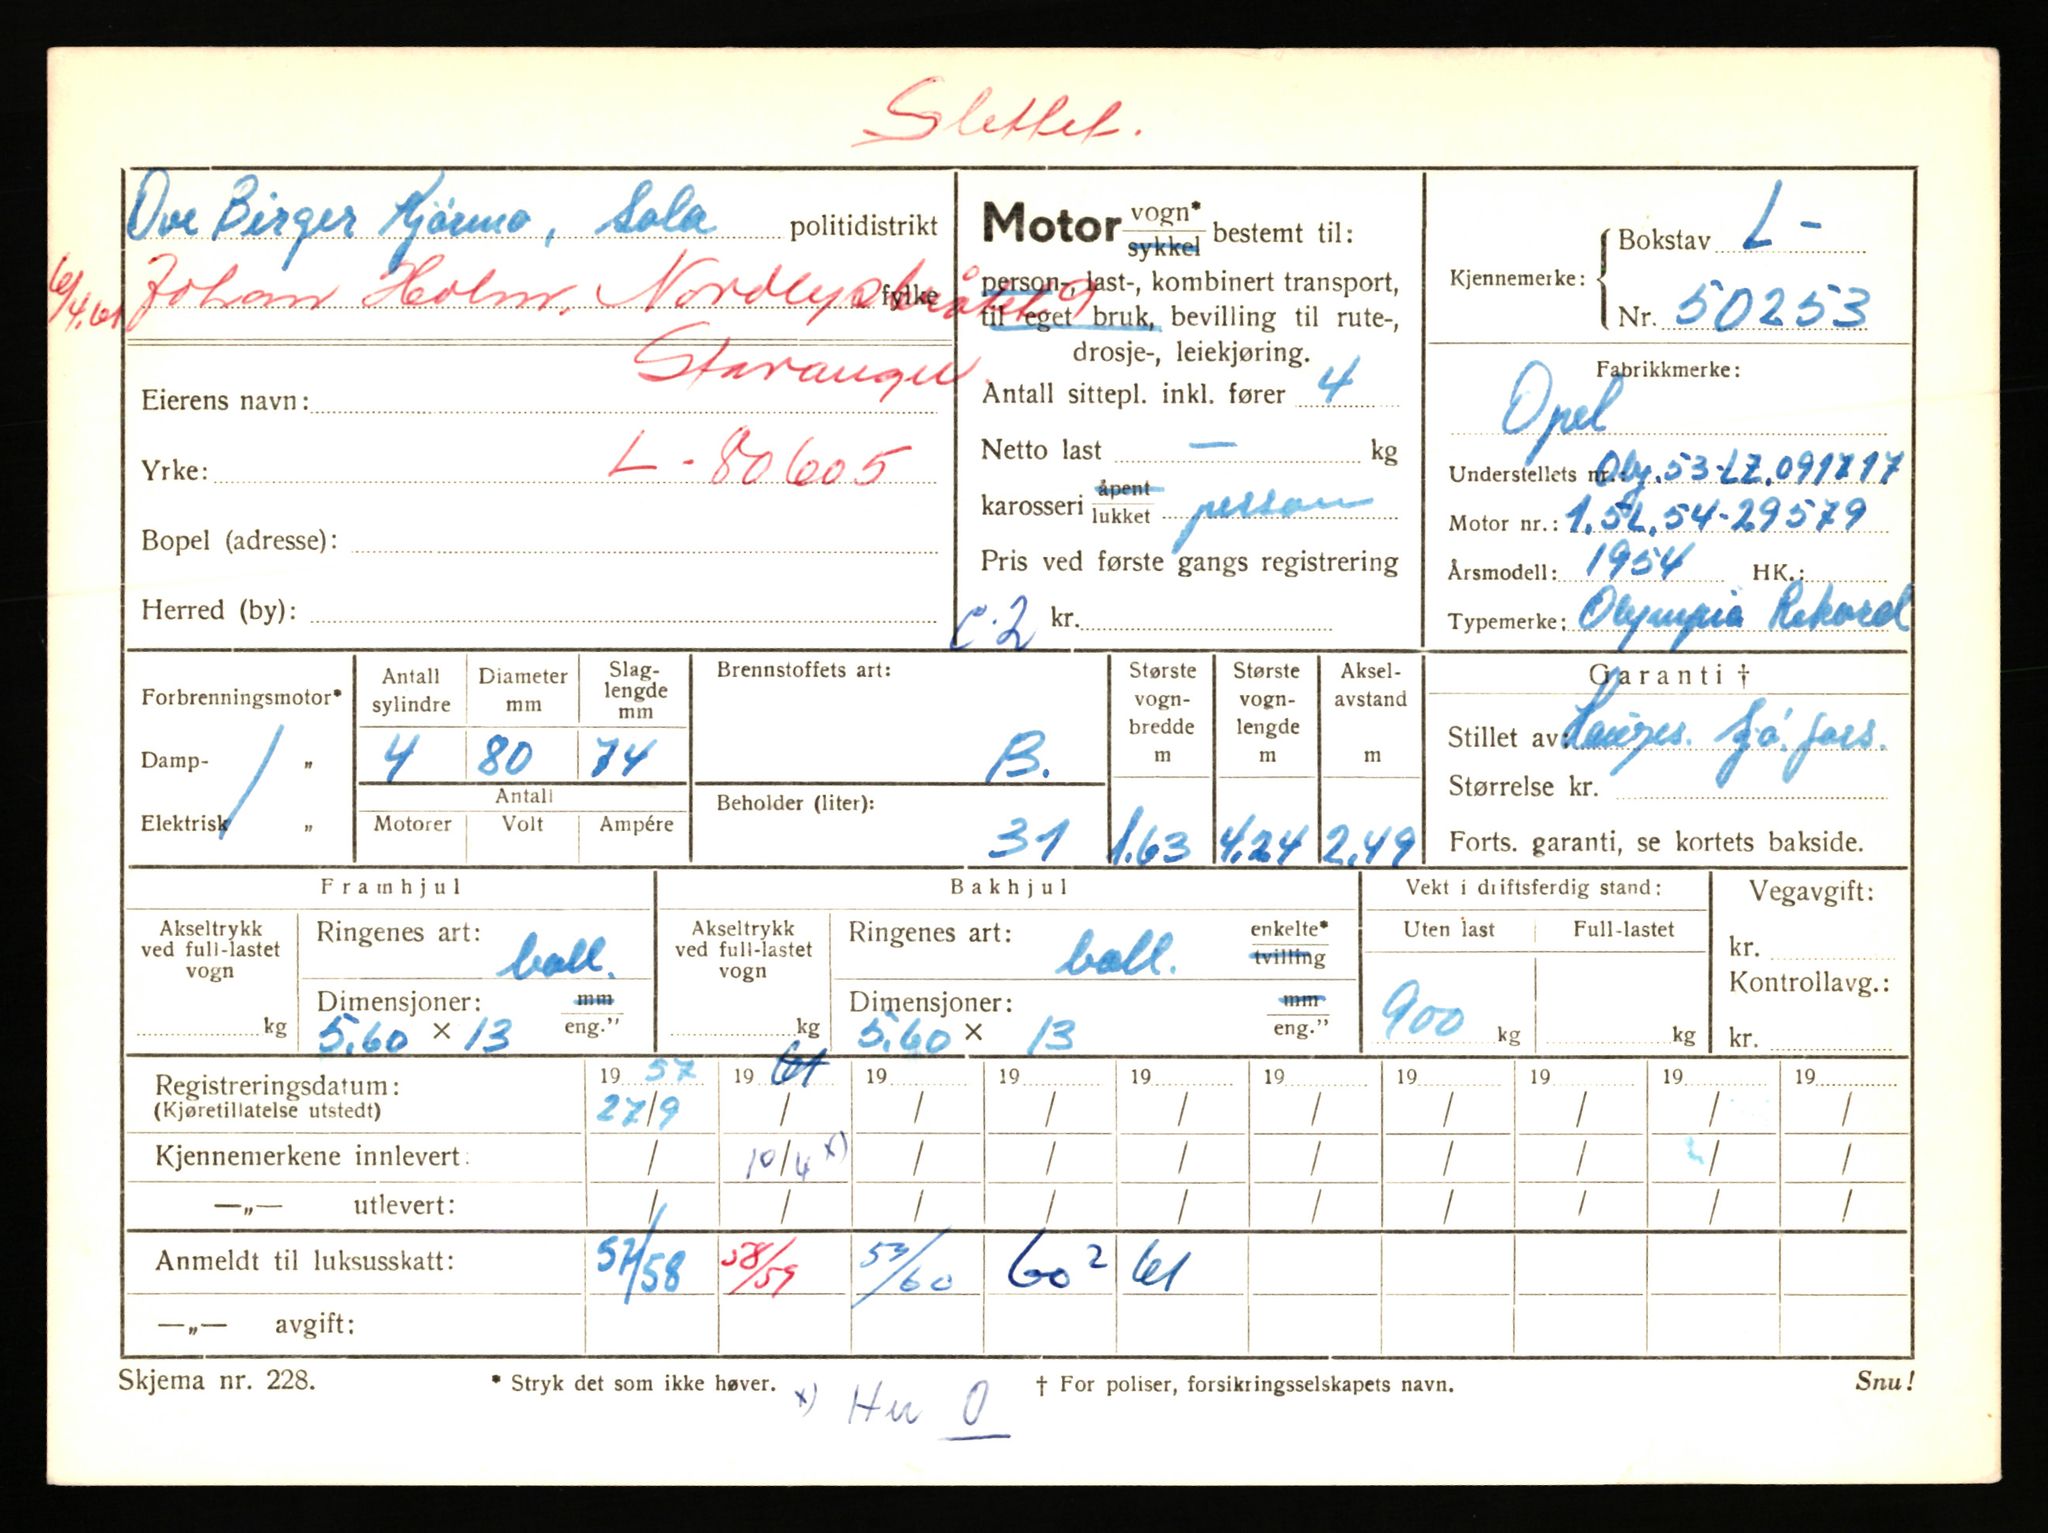 Slettet.
Ove Birger Kjörmo, Sola politidistrikt
6/4.61 Johan Holm, Nordlysbråtet 9 fylke
Stavanger.
Eierens navn:
L - 80605
Yrke:
Bopel (adresse):
Herred (by):
Motor vogn* sykkel bestemt til:
person-, last-, kombinert transport,
til eget bruk, bevilling til rute-,
drosje-, leiekjøring.
Antall sittepl. inkl. fører 4
Netto last — kg
karosseri åpent lukket person
Pris ved første gangs registrering
c.2 kr.
Kjennemerke: Bokstav L -
Nr. 50253
Fabrikkmerke:
Opel
Understellets nr.: Oly.53-LZ.091717
Motor nr.: 1.5L.54-29579
Årsmodell: 1954 HK.:
Typemerke: Olympia Rekord
Forbrenningsmotor*
Damp- „
Elektrisk „
Antall sylindre
Diameter mm
Slaglengde mm
4 80 74
Antall
Motorer Volt Ampére
Brennstoffets art:
B.
Beholder (liter):
31
Største vognbredde m
1.63
Største vognlengde m
4.24
Akselavstand m
2.49
Garanti †
Stillet av:
Størrelse kr.
Forts. garanti, se kortets bakside.
Framhjul
Akseltrykk ved full-lastet vogn
kg
Ringenes art: ball.
Dimensjoner: mm eng.”
5.60 × 13
Bakhjul
Akseltrykk ved full-lastet vogn
kg
Ringenes art: ball. enkelte* tvilling
Dimensjoner: mm eng.”
5.60 × 13
Vekt i driftsferdig stand:
Uten last Full-lastet
900 kg kg
Vegavgift:
kr.
Kontrollavg.:
kr.
Registreringsdatum: 19 57 19 61 19 19 19 19 19 19 19 19
(Kjøretillatelse utstedt) 27/9 / / / / / / / / /
Kjennemerkene innlevert: / 10/4 x) / / / / / / / /
—„— utlevert: / / / / / / / / / /
Anmeldt til luksusskatt: 57/58 58/59 53/60 60² 61
—„— avgift:
Skjema nr. 228. * Stryk det som ikke høver. † For poliser, forsikringsselskapets navn. Snu!
x)